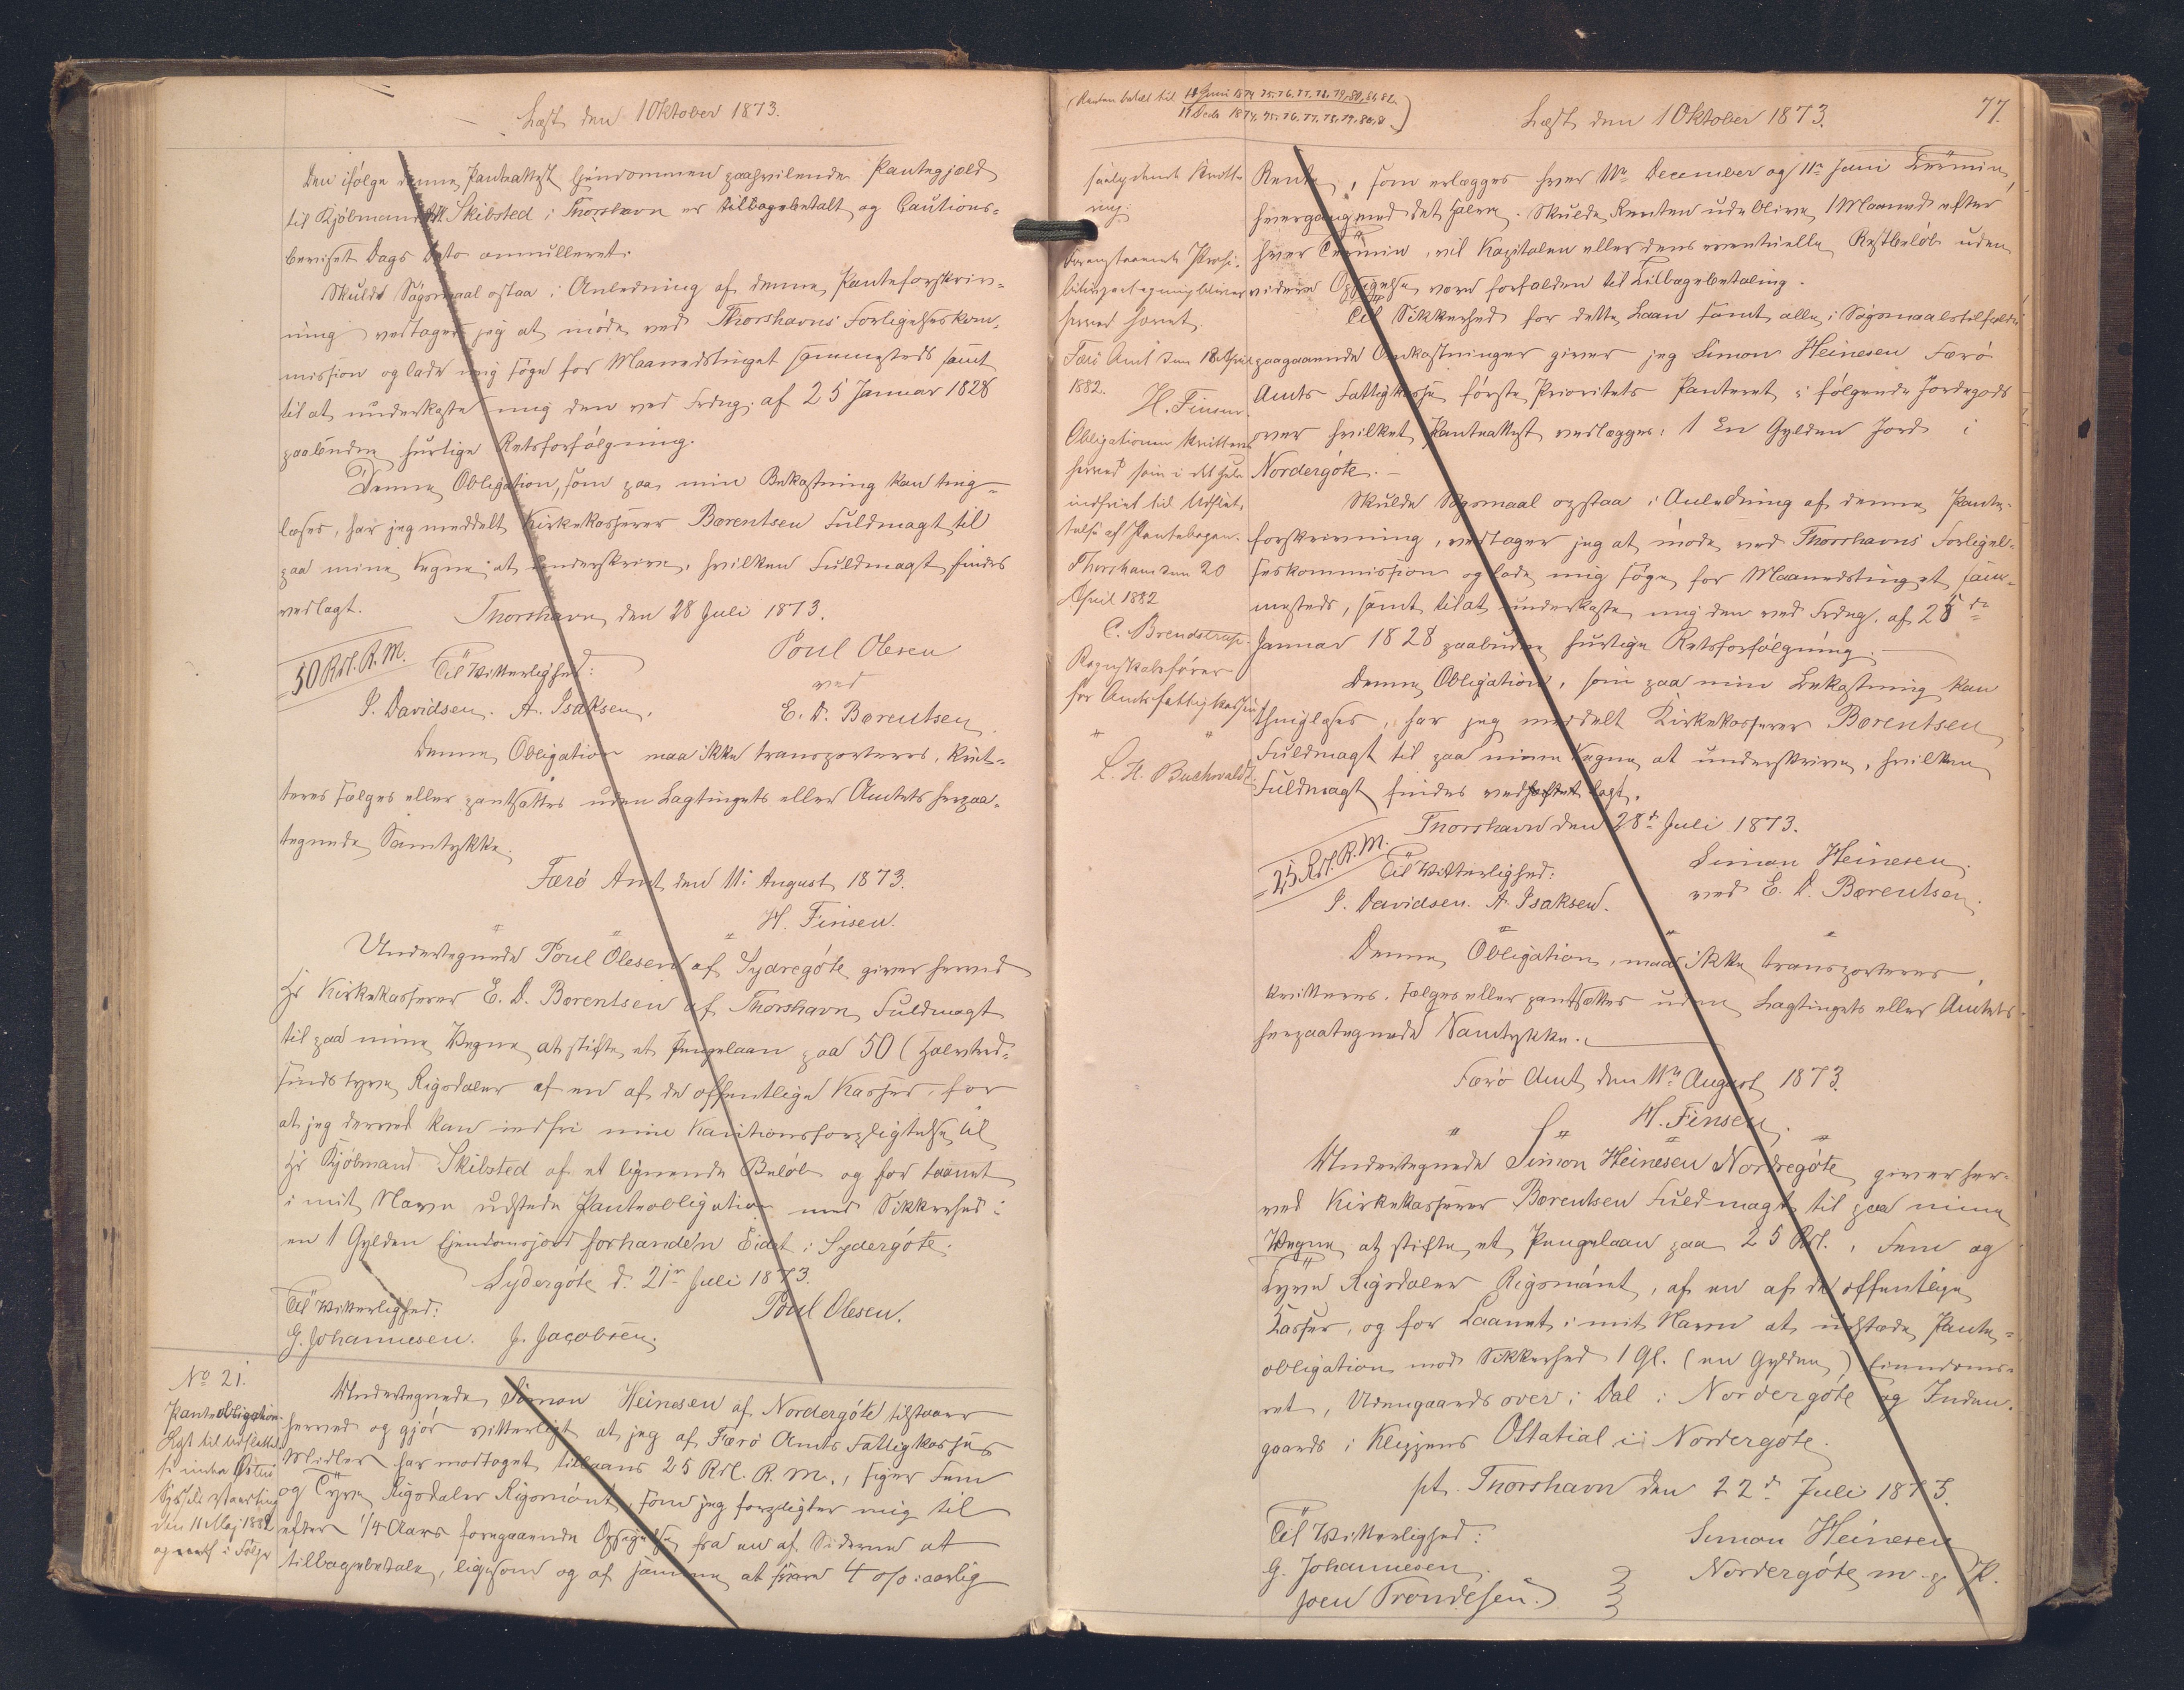 Læst den 1 Oktober 1873.
Den ifølge denne Panteattest Ejendommen paahvilende Pantegjæld
til Kjøbmand Skibsted i Thorshavn er tilbagebetalt og Cautions-
beviset Dags Dato annulleret.
Skulde Søgsmaal opstaa i Anledning af denne Panteforskriv-
ning vedtager jeg at møde ved Thorshavns Forligelseskom-
mission og lade mig søge for Maanedstinget sammesteds samt
til at underkaste mig den ved Frdng. af 25 Januar 1828
paabudne hurtige Retsforfølgning.
Denne Obligation, som paa min Bekostning kan ting-
læses, har jeg meddelt Kirkekasserer Børentsen Fuldmagt til
paa mine Vegne at underskrive, hvilken Fuldmagt findes
vedlagt.
Thorshavn, den 28 Juli 1873.
50 Rdl. R. M.
Til Vitterlighed:
Poul Olesen
ved
J. Davidsen. A. Isaksen.
E. D. Børentsen
Denne Obligation maa ikke transporteres, kvit-
teres sælges eller pantsættes uden Lagtingets eller Amtets herpaa-
tegnede Samtykke.
Færø Amt den 11. August 1873.
H. Finsen.
Undertegnede Poul Olesen af Sydregöte giver herved
Hr Kirkekasserer E. D. Børentsen af Thorshavn Fuldmagt
til paa mine Vegne at stifte et Pengelaan paa 50 (halvtred-
sindstyve Rigsdaler af en af de offentlige Kasser, for
at jeg derved kan indfri min Kautionsforpligtelse til
Hr Kjøbmand Skibsted af et lignende Beløb og for Laanet
i mit Navn udstede Panteobligation mod Sikkerhed i
en 1 Gylden Ejendomsjord forhanden Eidet i Sydergöte.
Sydergöte d. 21n Juli 1873.
Til Vitterlighed:
Poul Olesen.
G. Johannesen. J. Jacobsen.
No 21.
Panteobligation
Lyst til Udslettel-
se inden Østerø
Syssels Vaarting
den 11 Maj 1882
og i Følge
Undertegnede Simon Heinesen af Nordergöte tilstaaer
herved og gjør vitterligt at jeg af Færø Amts Fattigkasses
Midler har modtaget tillaans 25 Rdl. R. M., siger Fem
og Tyve Rigsdaler Rigsmønt, som jeg forpligter mig til
efter 1/4 Aars foregaaende Opsigelse fra en af Siderne at
tilbagebetale, ligesom og af samme at svare 4 o/o aarlig
(Renten betalt til 11 Juni 1874. 75. 76. 77. 78. 79. 80. 81. 82.
11 Decbr 1874. 75. 76. 77. 78. 79. 80. 81.)
Læst den 1 Oktober 1873.
77.
saalydende Kvitte-
ring:
foranstaaende Prohi-
bitivpaategning bliver
herved hævet.
Færø Amt den 18 April
1882.
H. Finsen.
Obligationen kvitteres
herved som i det hele
indfriet til Udslet-
telse af Pantebogen.
Thorshavn den 20
April 1882
C. Brendstrup.
Regnskabsfører
for Amtsfattigkassen
L. H. Buchwaldt.
Rente, som erlægges hver 11te December og 11te Juni Termin,
hvergang med det halve. Skulde Renten udeblive 1 Maaned efter
hver Termin, vil Kapitalen eller dens eventuelle Restbeløb uden
videre Opsigelse være forfalden til Tilbagebetaling.
Til Sikkerhed for dette Laan samt alle i Søgsmaalstilfælde
paagaaende Omkostninger giver jeg Simon Heinesen Færø
Amts Fattigkasse første Prioritets Panteret i følgende Jordegods
over hvilket Panteattest vedlægges: 1 En Gylden Jord i
Nordergöte. —
Skulde Søgsmaal opstaa i Anledning af denne Pante-
forskrivning, vedtager jeg at møde ved Thorshavns Forligel-
seskommission og lade mig søge for Maanedstinget sam-
mesteds, samt til at underkaste mig den ved Frdng. af 25de
Januar 1828 paabudne hurtige Retsforfølgning. —
Denne Obligation, som paa min Bekostning kan
thinglæses, har jeg meddelt Kirkekasserer Børentsen
Fuldmagt til paa mine Vegne at underskrive, hvilken
Fuldmagt findes vedhæftet lagt.
Thorshavn den 28de Juli 1873.
25 Rdl. R. M.
Til Vitterlighed:
Simon Heinesen.
J. Davidsen. A. Isaksen.
ved E. D. Børentsen.
Denne Obligation, maa ikke transporteres,
kvitteres, sælges eller pantsættes uden Lagtingets eller Amtets
herpaategnede Samtykke.
Færø Amt, den 11te August 1873.
H. Finsen.
Undertegnede Simon Heinesen Nordregöte giver her-
ved Kirkekasserer Børentsen Fuldmagt til paa mine
Vegne at stifte et Pengelaan paa 25 Rdl., Fem og
tyve Rigsdaler Rigsmønt, af en af de offentlige
Kasser, og for Laanet i mit Navn at udstæde Pante-
obligation mod Sikkerhed 1 Gl. (en Gylden) Eiendoms-
ret, Udengaards over i Dal i Nordergöte og Inden-
gaards i Klippens i Nordergöte.
pt. Thorshavn den 22de Juli 1873.
Til Vitterlighed:
Simon Heinesen
G. Johannesen.
Nordergöte m. p. P.
Joen Trondesen.